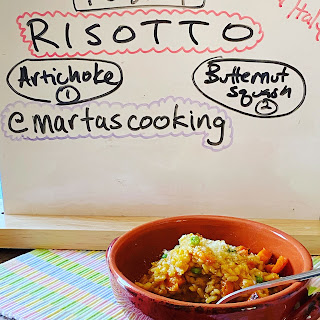 RISOTTO
Artichoke
1
Butternut
squash
2
@martascooking